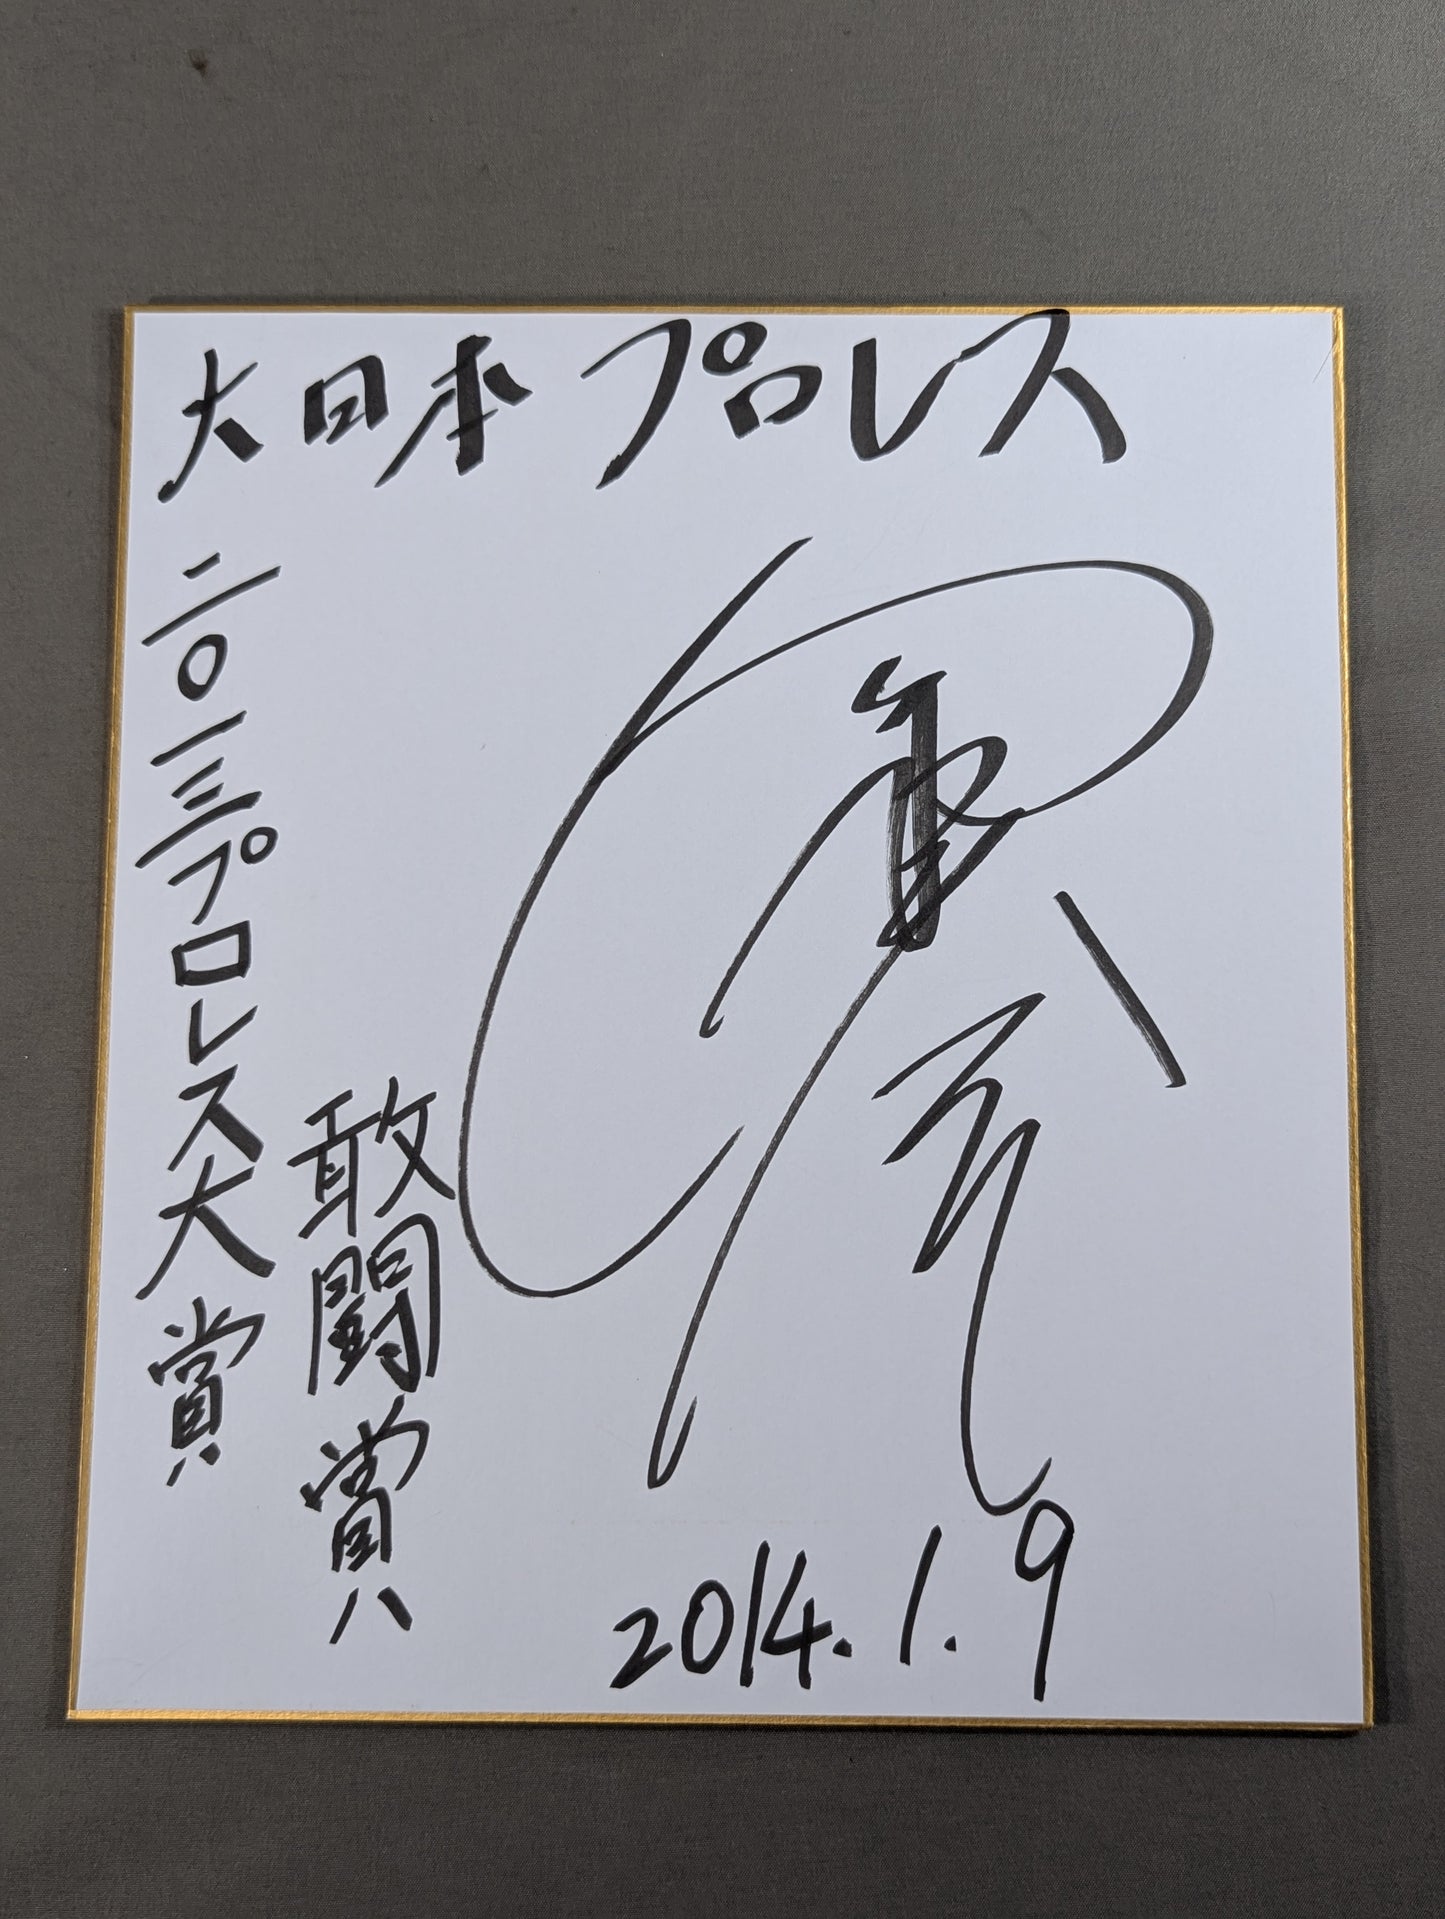 大日本プロレス
二〇一三プロレス大賞
敢闘賞
2014.1.9